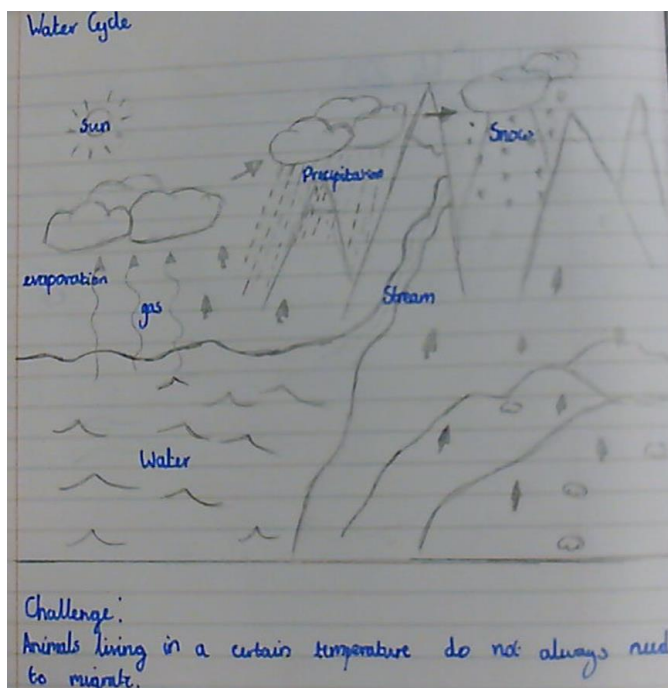 Water Cycle
Sun
Snow
Precipitation
evaporation
gas
Stream
Water
Challenge:
Animals living in a curtain temperature do not always need
to migrate.